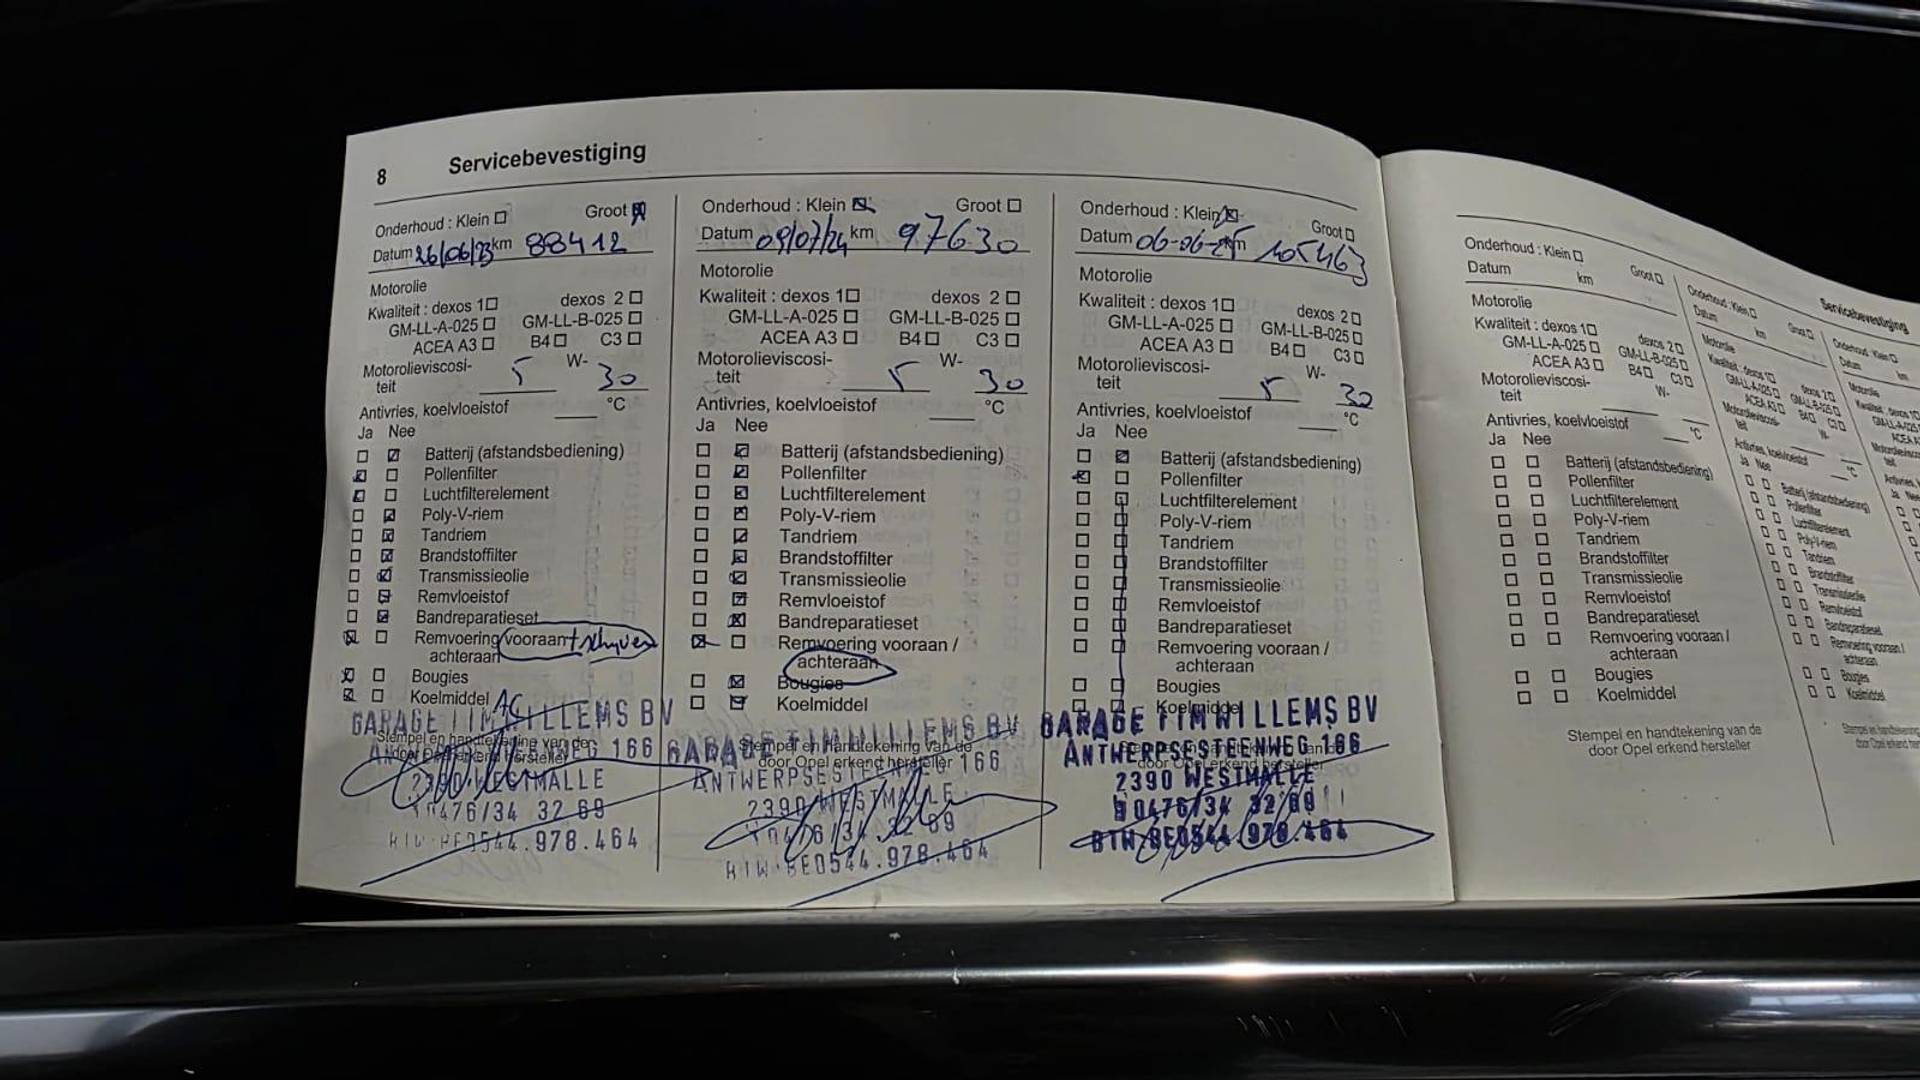 8 Servicebevestiging
Onderhoud : Klein Groot
Datum 26/06/23 km 88412
Motorolie
Kwaliteit : dexos 1 dexos 2
GM-LL-A-025 GM-LL-B-025
ACEA A3 B4 C3
Motorolieviscosi-
teit 5 W- 30
Antivries, koelvloeistof °C
Ja Nee
Batterij (afstandsbediening)
Pollenfilter
Luchtfilterelement
Poly-V-riem
Tandriem
Brandstoffilter
Transmissieolie
Remvloeistof
Bandreparatieset
Remvoering vooraan + schijven
achteraan
Bougies
Koelmiddel AC
GARAGE TIM WILLEMS BV
Stempel en handtekening van de
door Opel erkend hersteller
166
WESTMALLE
0476/34 32 69
BTW BE0544.978.464
Onderhoud : Klein Groot
Datum 09/07/24 km 97630
Motorolie
Kwaliteit : dexos 1 dexos 2
GM-LL-A-025 GM-LL-B-025
ACEA A3 B4 C3
Motorolieviscosi-
teit 5 W- 30
Antivries, koelvloeistof °C
Ja Nee
Batterij (afstandsbediening)
Pollenfilter
Luchtfilterelement
Poly-V-riem
Tandriem
Brandstoffilter
Transmissieolie
Remvloeistof
Bandreparatieset
Remvoering vooraan /
achteraan
Bougies
Koelmiddel
GARAGE TIM WILLEMS BV
Stempel en handtekening van de
door Opel erkend hersteller
ANTWERPSESTEENWEG 166
2390 WESTMALLE
BTW BE0544.978.464
Onderhoud : Klein Groot
Datum 06-06-25 km 105463
Motorolie
Kwaliteit : dexos 1 dexos 2
GM-LL-A-025 GM-LL-B-025
ACEA A3 B4 C3
Motorolieviscosi-
teit 5 W- 30
Antivries, koelvloeistof °C
Ja Nee
Batterij (afstandsbediening)
Pollenfilter
Luchtfilterelement
Poly-V-riem
Tandriem
Brandstoffilter
Transmissieolie
Remvloeistof
Bandreparatieset
Remvoering vooraan /
achteraan
Bougies
Koelmiddel
GARAGE TIM WILLEMS BV
ANTWERPSESTEENWEG 166
door Opel erkend hersteller
2390 WESTMALLE
0476/34 32 69
BTW BE0544.978.464
Onderhoud : Klein Groot
Datum km
Motorolie
Kwaliteit : dexos 1 dexos 2
GM-LL-A-025 GM-LL-B-025
ACEA A3 B4 C3
Motorolieviscosi-
teit W-
Antivries, koelvloeistof °C
Ja Nee
Batterij (afstandsbediening)
Pollenfilter
Luchtfilterelement
Poly-V-riem
Tandriem
Brandstoffilter
Transmissieolie
Remvloeistof
Bandreparatieset
Remvoering vooraan /
achteraan
Bougies
Koelmiddel
Stempel en handtekening van de
door Opel erkend hersteller
Servicebevestiging
Onderhoud : Klein Groot
Datum km
Motorolie
Kwaliteit : dexos 1 dexos 2
GM-LL-A-025 GM-LL-B-025
ACEA A3 B4 C3
Motorolieviscosi-
teit W-
Antivries, koelvloeistof °C
Ja Nee
Batterij (afstandsbediening)
Pollenfilter
Luchtfilterelement
Poly-V-riem
Tandriem
Brandstoffilter
Transmissieolie
Remvloeistof
Bandreparatieset
Remvoering vooraan /
achteraan
Bougies
Koelmiddel